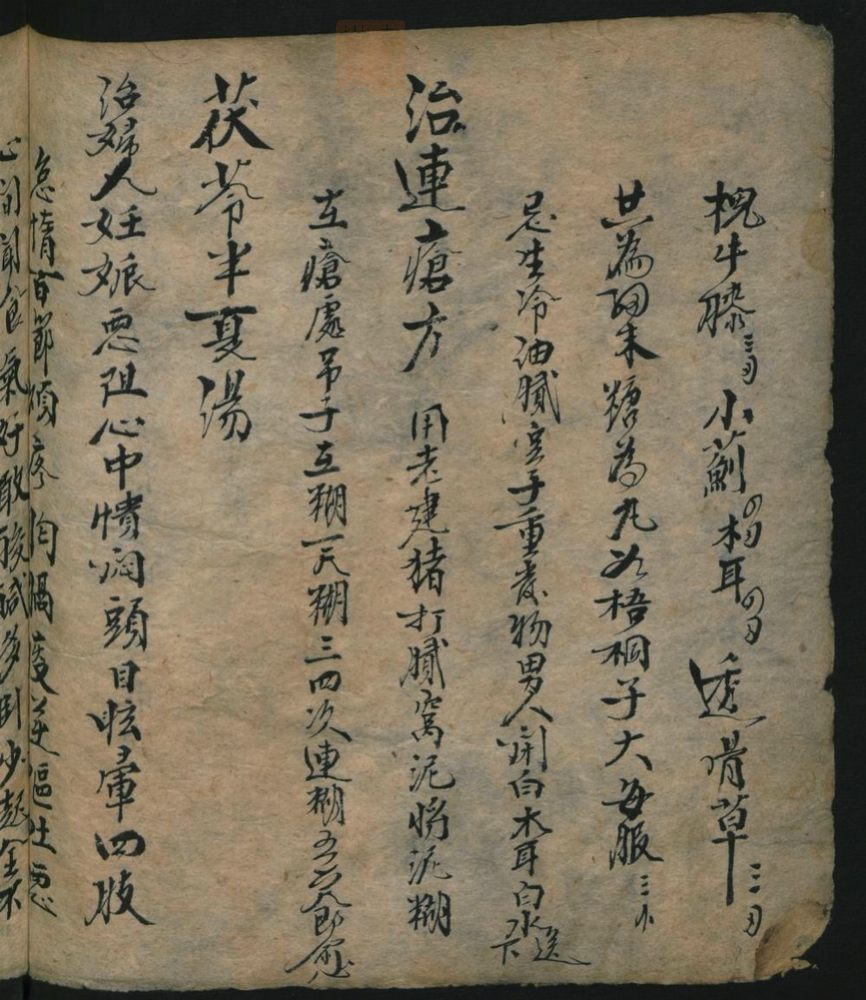 槐牛膝三匁 小薊四匁 木耳四匁 透骨草三匁
共為細末糖為丸如梧桐子大每服三小
忌生冷油膩室子重發物男人用白木耳白水送下
治連瘡方 用老建猪打膩窩泥將泥糊
在瘡處吊子在糊一天糊三四次連糊五六天即愈
茯苓半夏湯
治婦人妊娠惡阻心中憒悶頭目眩暈四肢
怠惰百節煩疼 逆嘔吐惡
心聞食氣好啖酸鹹多卧少起全不